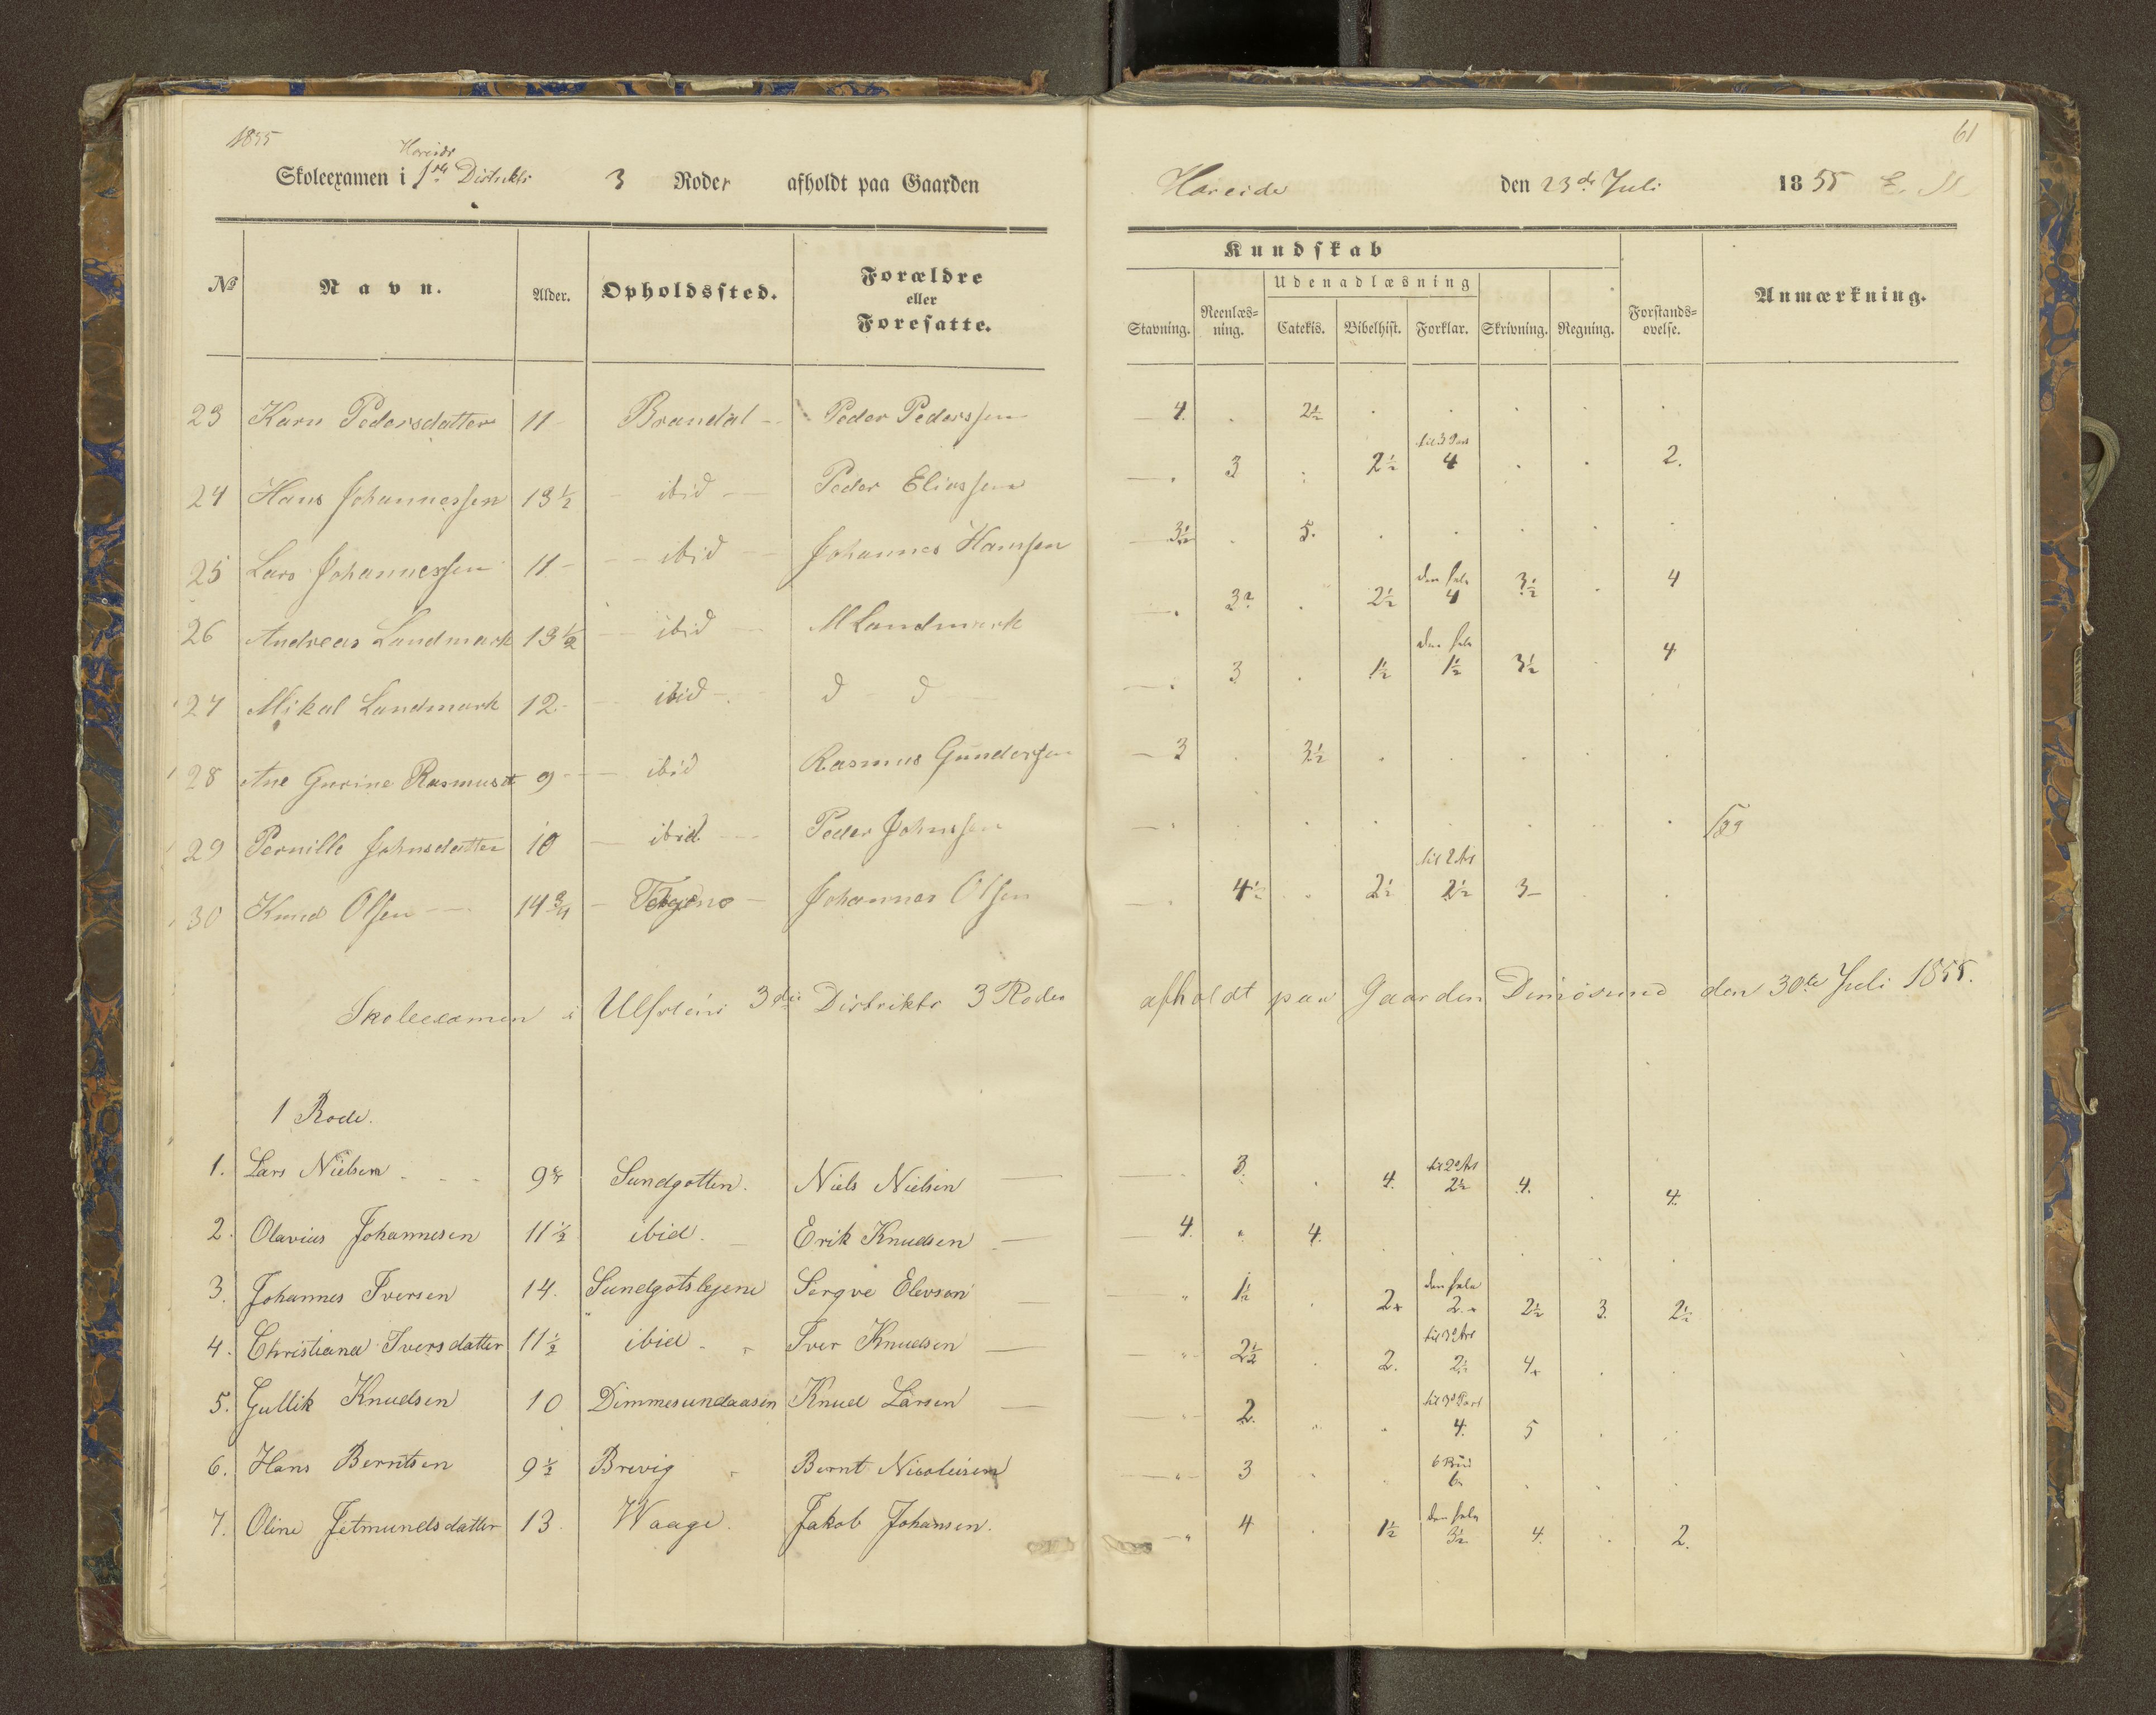 1855
61
Horeide
Skoleexamen i 1ste Distrikts 3 Roder afholdt paa Gaarden Hareide den 23de Juli 1855
Kundskab
Udenadlæsning
No Navn. Alder. Opholdssted. Forældre eller Foresatte. Stavning. Reenlæs=ning. Catekis. Bibelhist. Forklar. Skrivning. Regning. Forstands=ovelse. Anmærkning.
23 Karn Pedersdatter 11 Brandal Peder Pederssen 4. 2½
24 Hans Johannessen 13½ ibid Peder Eliassen 3 2½ til 3 Part 4 2.
25 Lars Johannessen 11 ibid Johannes Hanssen 3½ 5.
26 Andreas Landmark 13½ ibid M Landmark 3 2½ den hele 4 3½ 4
27 Mikal Landmark 12 ibid d d 3 1½ den hele 1½ 3½ 4
28 Ane Gurine Rasmusd 9 ibid Rasmus Gunderssen 3 3½
29 Pernille Johnsdatter 10 ibid Peder Johnssen
30 Knud Olsen 14¾ Johannes Olsen 4½ 2½ til 2 Art 2½ 3
Skoleexamen i Ulfsteins 3die Distrikts 3 Roder afholdt paa Gaarden Dimösund den 30te Juli 1855.
1 Rode.
1. Lars Nielsen 9 Sundgotten. Niels Nielsen 3. 4. til 2 Art 2½ 4. 4.
2. Olavius Johannesen 11½ ibid. Erik Knudsen 4. 4.
3. Johannes Iversen 14. Sundgotslejene Serqve Elevsen 1½ 2 den hele 2 2½ 3. 2½
4. Christiane Iversdatter 11½ ibid Iver Knudsen 2½ 2. til 3 Art 2½ 4
5. Gullik Knudsen 10 Dimmesundaasen Knud Larsen 2. til 3 Part 4. 5
6. Hans Berntsen 9½ Brevig Bernt Nicolaisen 3 6 Bud 6
7. Oline Jetmundsdatter 13. Waage. Jakob Johansen. 4 1½ den hele 3½ 4. 2.